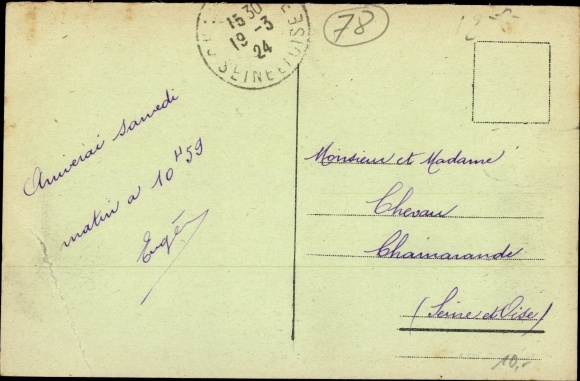 15 30
19-3
24
SEINE ET OISE
78
Arriverai samedi
matin a 10 H 59
Monsieur et Madame
Chevau
Chamarande
(Seine et Oise)
10,-